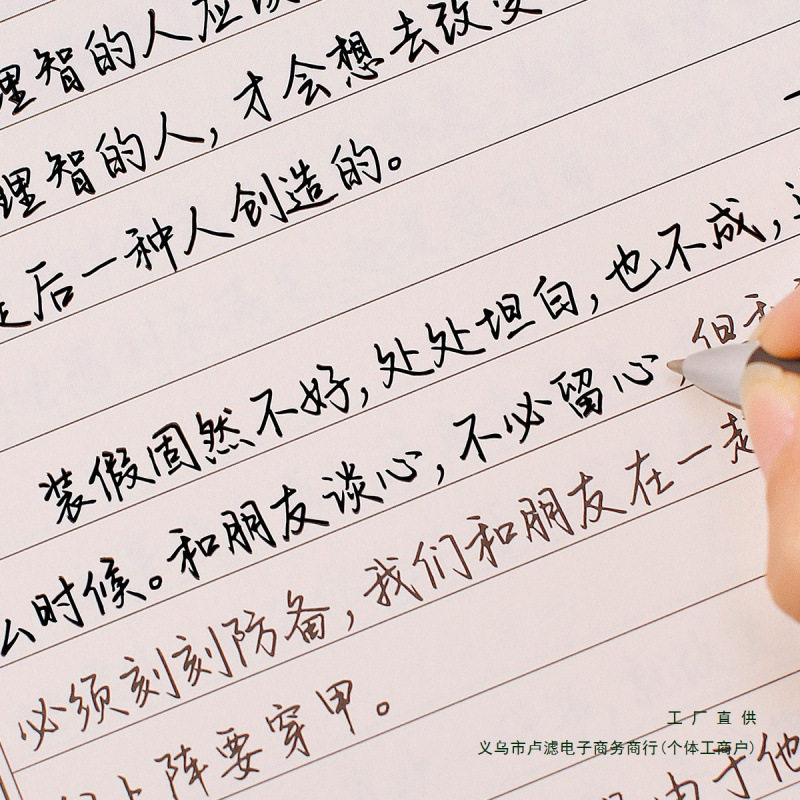 理智的人应该
理智的人，才会想去改变
是后一种人创造的。
装假固然不好，处处坦白，也不成，这
么时候。和朋友谈心，不必留心，但和
必须刻刻防备，我们和朋友在一起
上阵要穿甲。
由于他
工厂直供
义乌市卢滤电子商务商行(个体工商户)